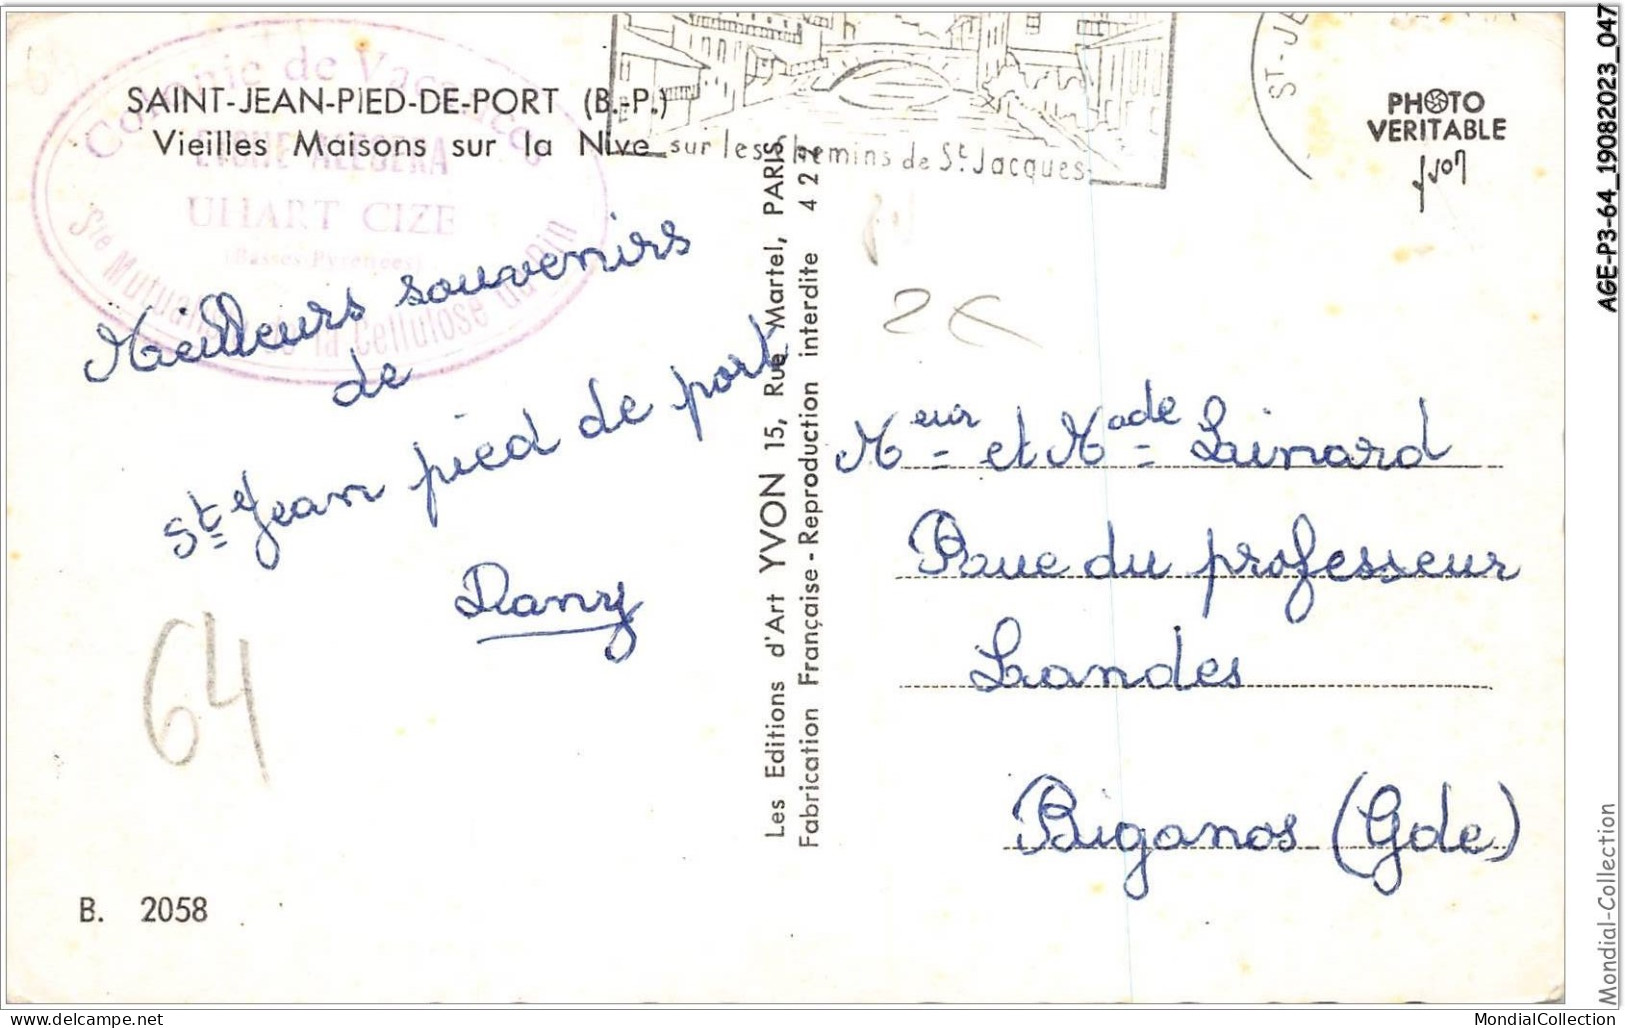 SAINT-JEAN-PIED-DE-PORT (B.-P.)
Vieilles Maisons sur la Nive
Colonie de Vacances
UHART CIZE
(Basses Pyrénées)
Ste Mutualiste de la Cellulose du Pin
sur les Chemins de St. Jacques
ST-JE
PHOTO
VERITABLE
Meilleurs souvenirs
de
St Jean pied de port
Dany
64
B. 2058
Les Editions d'Art YVON 15, Rue Martel, PARIS
Fabrication Française - Reproduction interdite 424
2€
Meur et Made Lainard
Rue du professeur
Landes
Biganos (Gde)
AGE-P3-64_19082023_047
Mondial-Collection
delcampe.net
MondialCollection